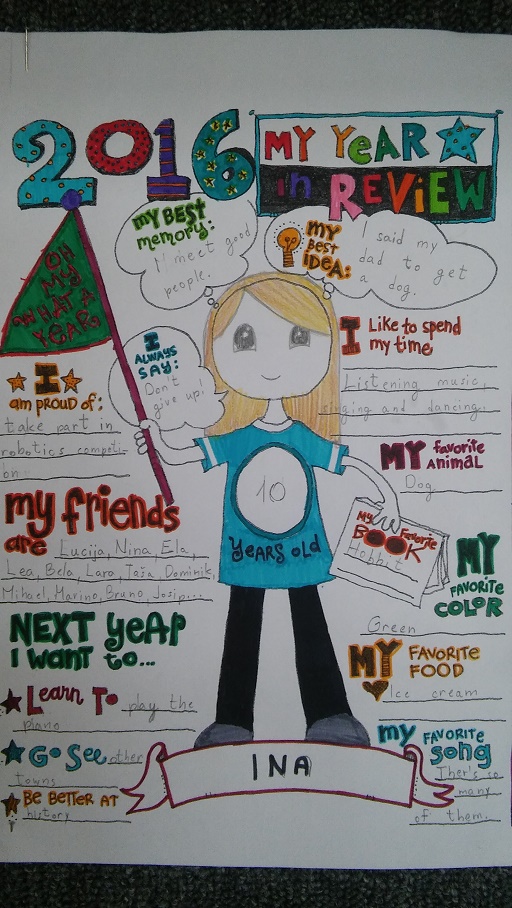 2016
MY YEAR
in REVIEW
MY BEST
memory:
I meet good
people.
MY
BEST
IDEA:
I said my
dad to get
a dog.
OH
MY
WHAT A
YEAR!
I
ALWAYS
SAY:
Don't
give up!
I Like to spend
my time
Listening music,
singing and dancing.
I
am PROUD OF:
take part in
robotics competi-
on
MY favorite
ANIMAL
Dog
my friends
are Lucija, Nina, Ela,
Lea, Bela, Lara, Taša, Dominik,
Mihael, Marino, Bruno, Josip...
10
YEARS OLD
My Favorite
BOOK
Hobbit
MY
FAVORITE
COLOR
Green
NEXT YEAR
I want to...
Learn To play the
piano
GO See other
towns
BE BETTER AT
history
MY FAVORITE
FOOD
Ice cream
my FAVORITE
song
Ther's so
many
of them.
INA